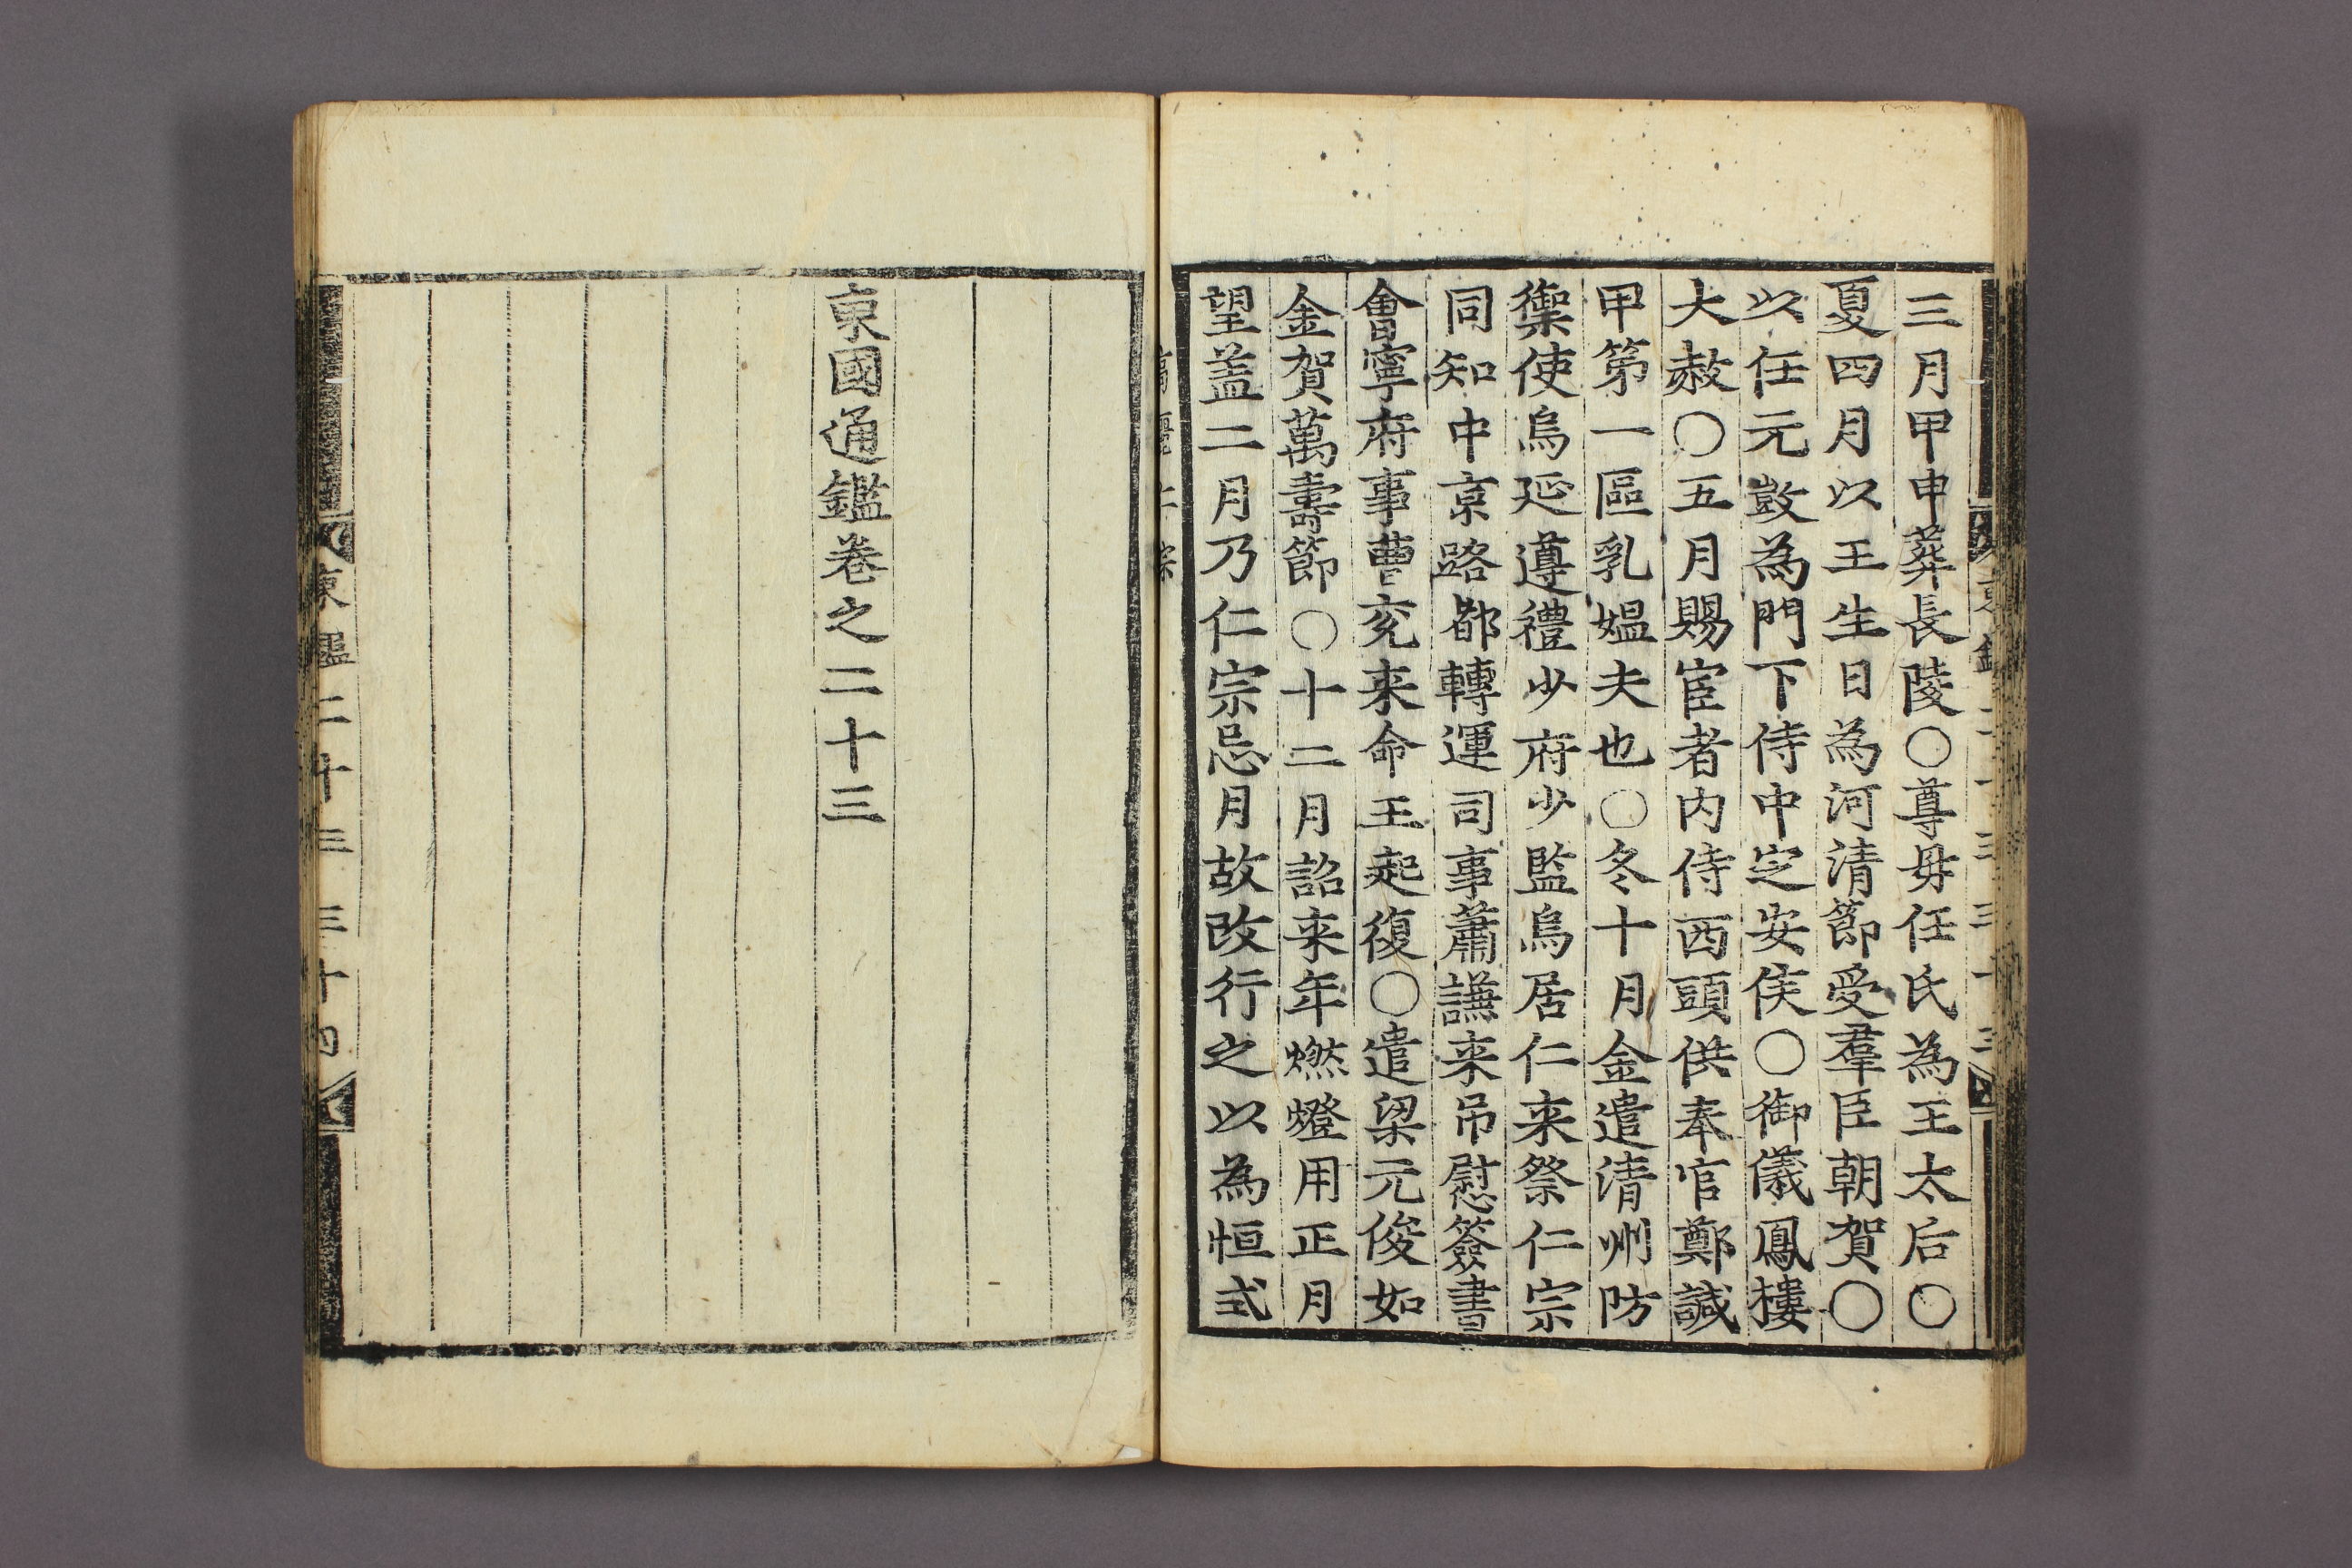 三月甲申葬長陵〇尊母任氏為王太后〇
夏四月以王生日為河清節受羣臣朝賀〇
以任元敳為門下侍中定安侯〇御儀鳳樓
大赦〇五月賜宦者内侍西頭供奉官鄭諴
甲第一區乳媼夫也〇冬十月金遣清州防
禦使烏延遵禮少府少監烏居仁来祭仁宗
同知中京路都轉運司事蕭謙来吊慰簽書
會寧府事曹兖来命王起復〇遣梁元俊如
金賀萬壽節〇十二月詔来年燃燈用正月
望盖二月乃仁宗忌月故改行之以為恒式
東國通鑑卷之二十三
東鑑二十三 三十四